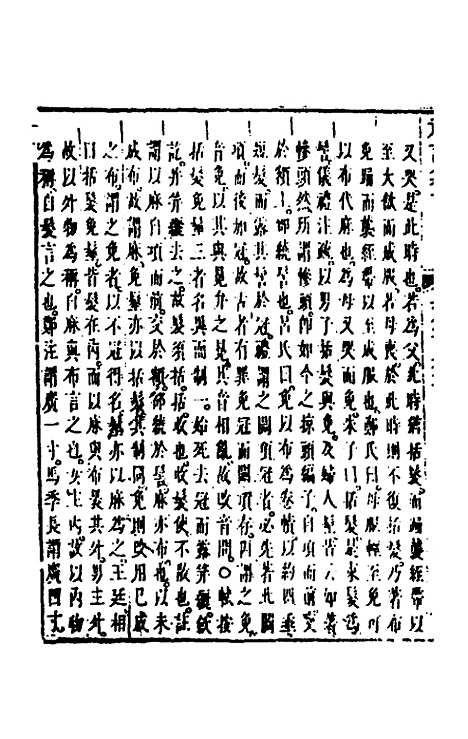 又哭是此時也若為父此時猶括髮而踊襲絰帶以
至大斂而成服若母喪於此時則不復括髮乃著布
免踊而襲絰帶以至成服也鄭氏曰母服輕至免可
以布代麻也為母又哭而免朱子曰括髮是束髮為
髻儀禮注疏以男子括髮與免及婦人髽皆云如著
幓頭然所謂幓頭即如今之掠頭編子自項而前交
於額上卻繞髻也呂氏曰免以布為卷幘以約四垂
短髮而露其髻於冠禮謂之闕項冠者必先著此闕
項而後加冠故古者有罪免冠而闕項存因謂之免
音免以其與冕弁之冕其音相亂故改音問○愚按
括髮免髽三者名異而制一始死去冠而露笄纚
訖弁笄纚去之故髮須括括收也收髮使不散也
謂以麻自項而前交於額卻繞於髻麻亦布也以未
成布故謂麻免髽亦以括髮其制同免則改用已成
之布謂之免者以不冠得名髽亦以麻為之主廷相
曰括髮免髽皆髮在內而以麻與布裹其外男主外
故以外物為稱自麻與布言之也女主內故以內物
為稱自髮言之也鄭注謂廣一寸馬季長謂廣四寸